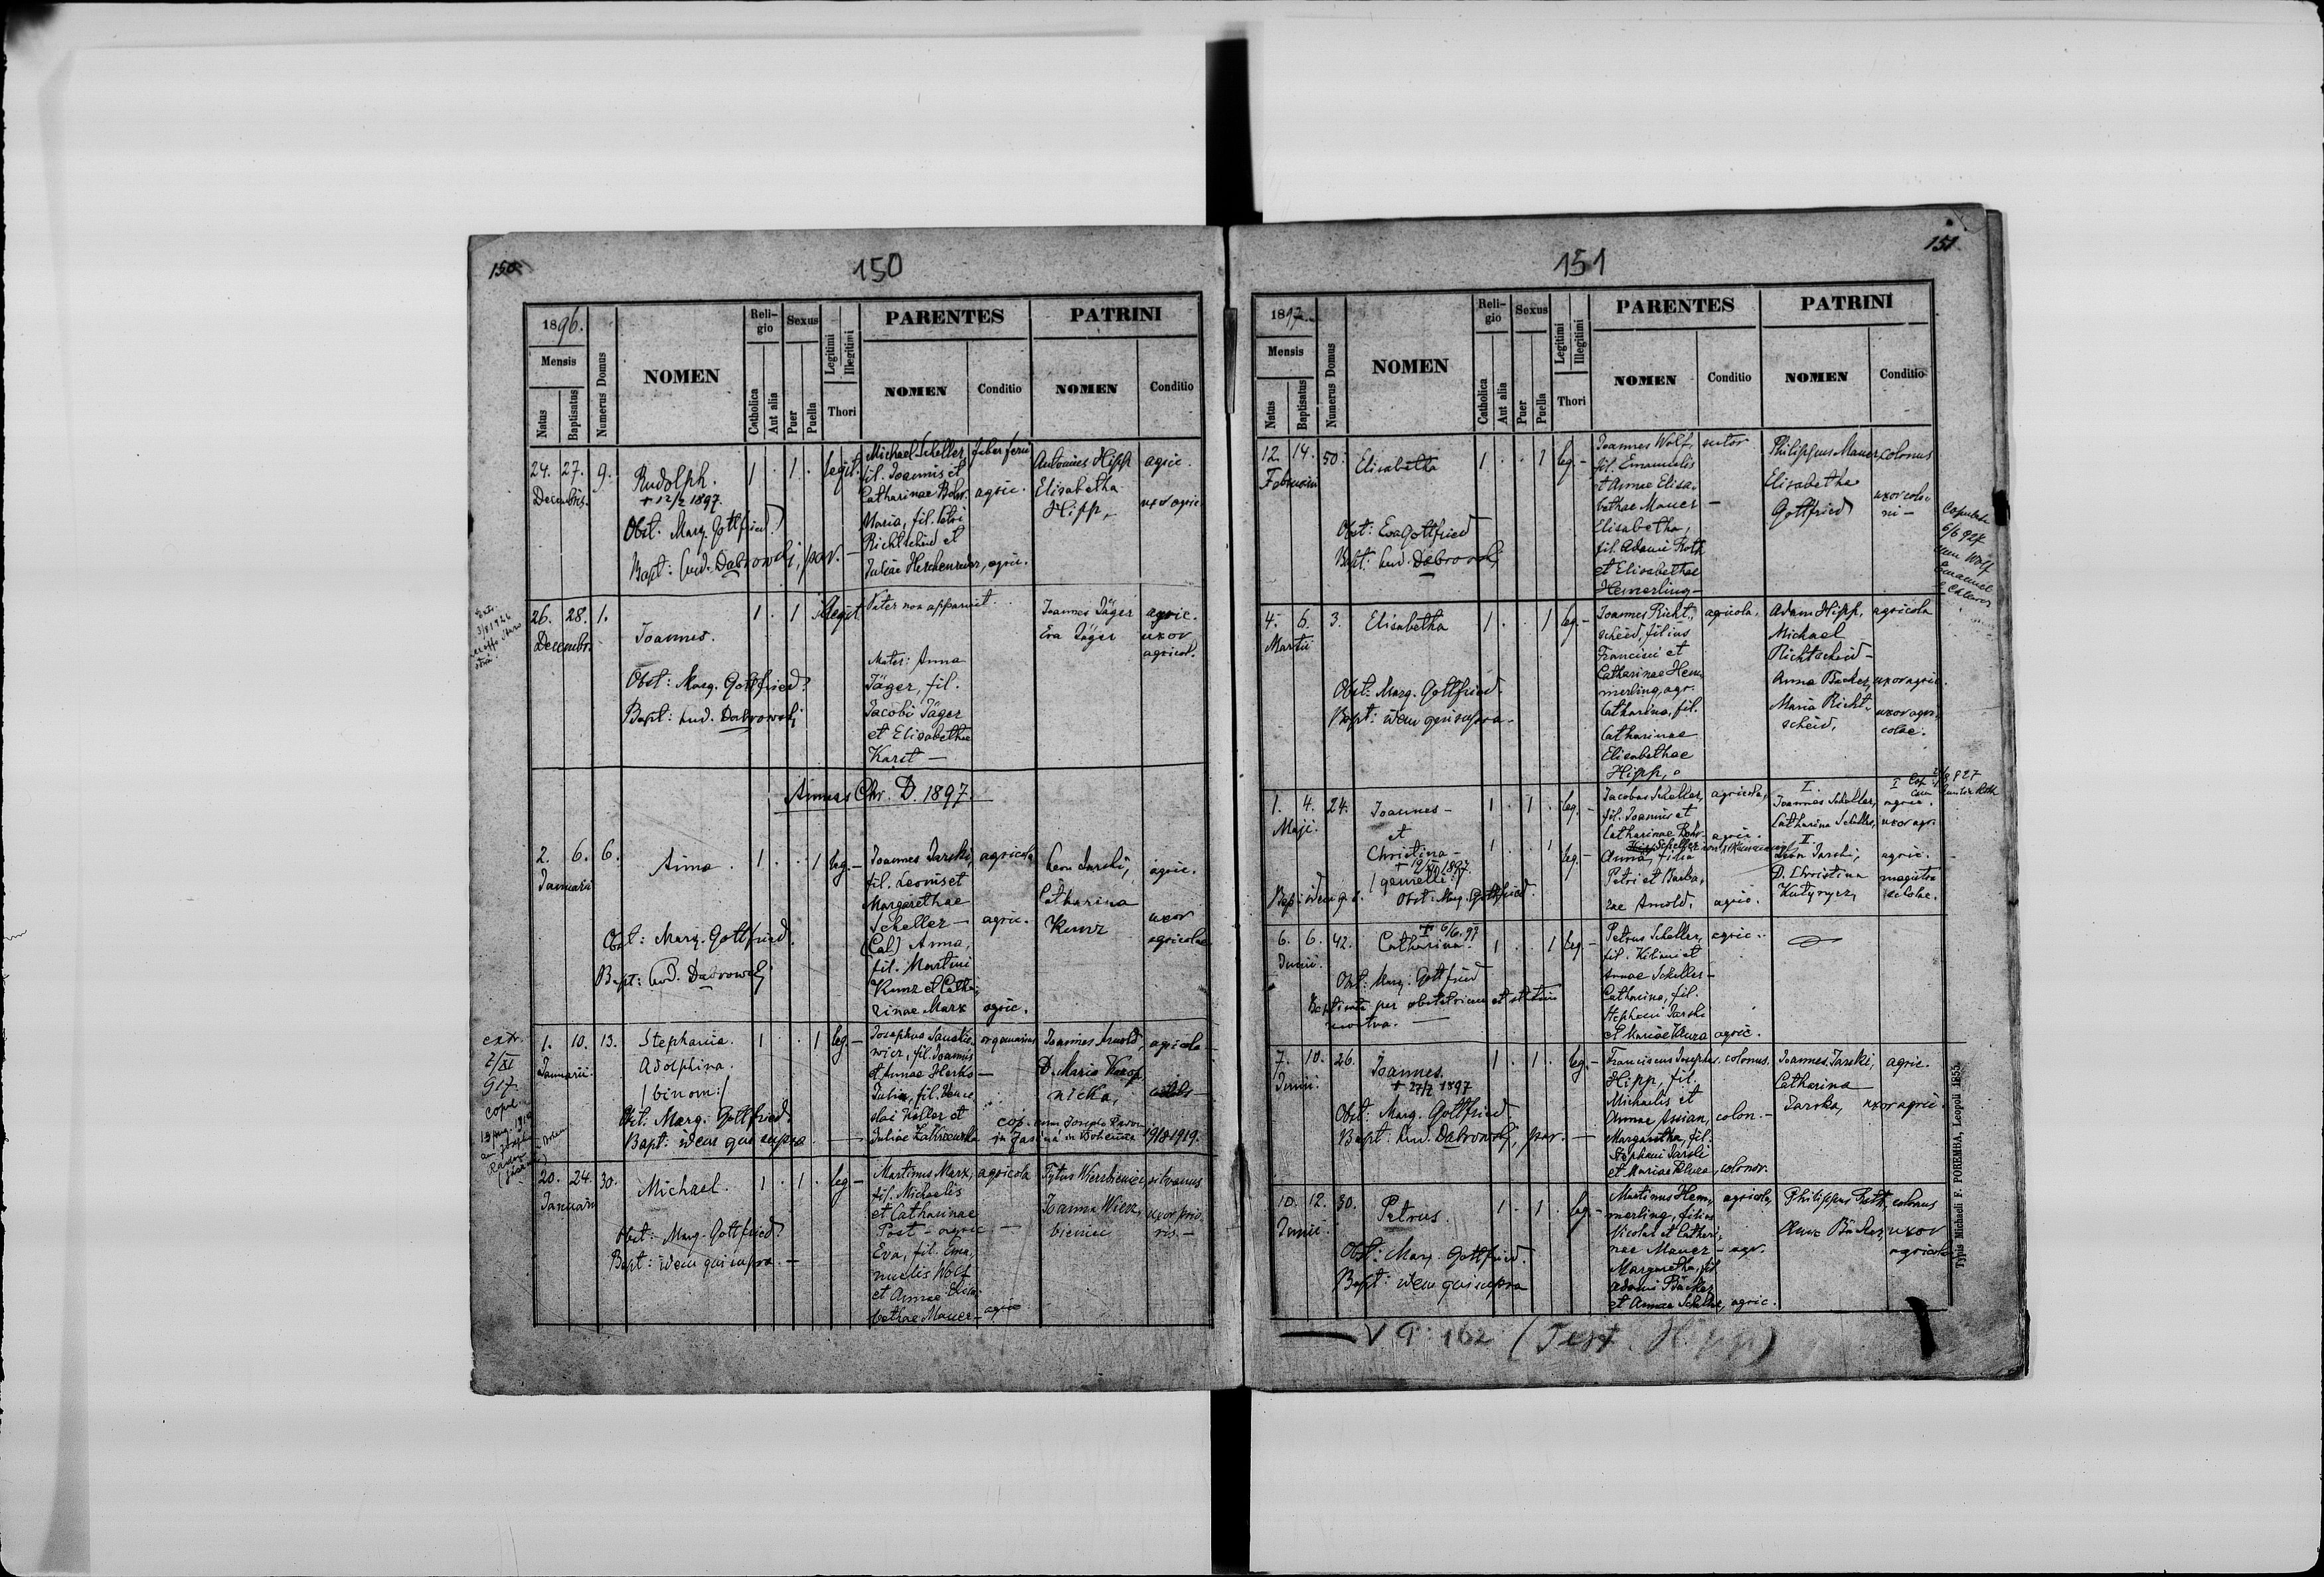 150
150
1896.
Mensis
Natus
Baptisatus
Numerus Domus
NOMEN
Reli-
gio
Catholica
Aut alia
Sexus
Puer
Puella
Legitimi
Illegitimi
Thori
PARENTES
NOMEN
Conditio
PATRINI
NOMEN
Conditio
24. 27. 9.
Decembris.
Rudolph.
+ 12/2 1897
Obst: Marg. Gottfried
Bapt: Lud. Dabrowski, par.
1 . 1 . legit.
Michael Scheller, faber ferri
fil. Joannis et
Catharinae Bohr. agric.
Maria, fil. Petri
Richtscheid et
Juliae, agric.
Antonius Hipp agric.
Elisabetha
Hipp, uxor agric
26. 28. 1.
Decembr.
Joannes.
Obst: Marg. Gottfried
Bapt: Lud. Dabrowski
1 . 1 illegit
Pater non apparuit.
Mater: Anna
Jäger, fil.
Jacobi Jäger
et Elisabethae
Karst —
Joannes Jäger agric.
Eva Jäger uxor
agricol.
Annus Chr. D. 1897.
2. 6. 6.
Januarii
Anna.
Obst: Marg. Gottfried.
Bapt: Lud. Dabrowski
1 . . 1 leg. —
Joannes Jarski, agricola
fil. Leonis et
Margarethae
Scheller — agric.
(Cal) Anna,
fil. Martini
Kunz et Catha-
rinae Marx agric.
Leon Jarski, agric.
Catharina
Kunz uxor
agricolae
extr.
2/XI
917
copul.
1. 10. 13.
Januarii.
Stephania.
Adolphina.
/ binom: /
Obst. Marg. Gottfried.
Bapt: idem qui supra
1 . . 1 leg. —
Josephus organarius
wicz, fil. Joannis
et Annae Herko —
Julia, fil. Vences
lai Höller et
Juliae Zakrzewska
Joannes Arnold, agricola
D. Maria
nicka,
cop. cum Josepho
in Jasina in Bohemia 1918-1919.
20. 24. 30.
Januarii
Michael.
Obst: Marg. Gottfried
Bapt: idem qui supra. —
1 . 1 . leg —
Martinus Marx, agricola
fil. Michaelis
et Catharinae
Post - agric —
Eva, fil. Ema,
nuelis Wolf
et Annae Elisa-
bethae Mauer — agric
Tytus Wierzbieniec, silvanus
Joanna Wierz,
bieniec
151
151
1897.
Mensis
Natus
Baptisatus
Numerus Domus
NOMEN
Reli-
gio
Catholica
Aut alia
Sexus
Puer
Puella
Legitimi
Illegitimi
Thori
PARENTES
NOMEN
Conditio
PATRINI
NOMEN
Conditio
12. 14. 50.
Februarii
Elisabetha
Obst: Eva Gottfried
Bapt: Lud. Dabrowski
1 . . 1 leg. —
Joannes Wolf, sutor
fil. Emanuelis
et Annae Elisa-
bethae Mauer —
Elisabetha,
fil. Adami Roth
et Elisabethae
Hemerling —
Philippus Mauer, colonus
Elisabetha
Gottfried uxor colo-
ni —
Copulata
6/6 927
cum Wolf
Emanuel
4. 6. 3.
Martii
Elisabetha
Obst: Marg. Gottfried.
Bapt: idem qui supra —
1 . . 1 leg. —
Joannes Richt, agricola.
scheid, filius
Francisci et
Catharinae Hem,
merling, agr.
Catharina, fil.
Catharinae
Elisabethae
Hipp,
Adam Hipp, agricola
Michael
Richtscheid —
Anna Bäcker, uxor agric.
Maria Richt-
scheid, uxor agri,
colae.
1. 4. 24.
Maji.
Joannes —
et
Christina —
+ 19/XII 1897.
/ gemelli: /
Bapt: idem q. s. Obst: Marg. Gottfried.
1 . 1 . leg. —
1 . . 1 leg. —
Jacobus Scheller, agricola,
fil. Joannis et
Catharinae Bohr — agric.
Anna, filia
Petri et Barba,
rae Arnold, agric.
I.
Joannes Scheller, agric.
Catharina Scheller, uxor agr.
II.
Leon Jarski, agric.
D. Christina magistra
Kutyrycz, scholae.
6. 6. 42.
Junii.
+ 6/6. 97
Catharina.
Obst: Marg. Gottfried
Baptisata per obstetricem et statim
mortua. —
1 . . 1 leg. —
Petrus Scheller, agric.
fil. Kiliani et
Annae Scheller —
Catharina, fil.
Stephani Jarski
et Mariae Kluza agric.
7. 10. 26.
Junii.
Joannes.
+ 27/7 1897
Obst: Marg. Gottfried.
Bapt: Lud. Dabrowski, par. —
1 . 1 . leg. —
Franciscus Josephus. colonus.
Hipp, fil.
Michaelis et
Annae Assian, colon. —
Margaretha, fil.
Stephani Jarski
et Mariae Kluza, colonor.
Joannes Jarski, agric.
Catharina
Jarska, uxor agric.
10. 12. 30.
Junii
Petrus.
Obst: Marg. Gottfried.
Bapt: idem qui supra
1 . 1 . leg. —
Martinus Hem, agricola,
merling, filius
Nicolai et Cathari,
nae Mauer — agr.
Margaretha, fil.
Adami Bäcker
et Annae Scheller, agric.
Philippus Roth, colonus
Anna Bäcker, uxor
agricolae
Typis Michaeli F. POREMBA, Leopoli 1855.
V P. 162 (Test. Hipp)